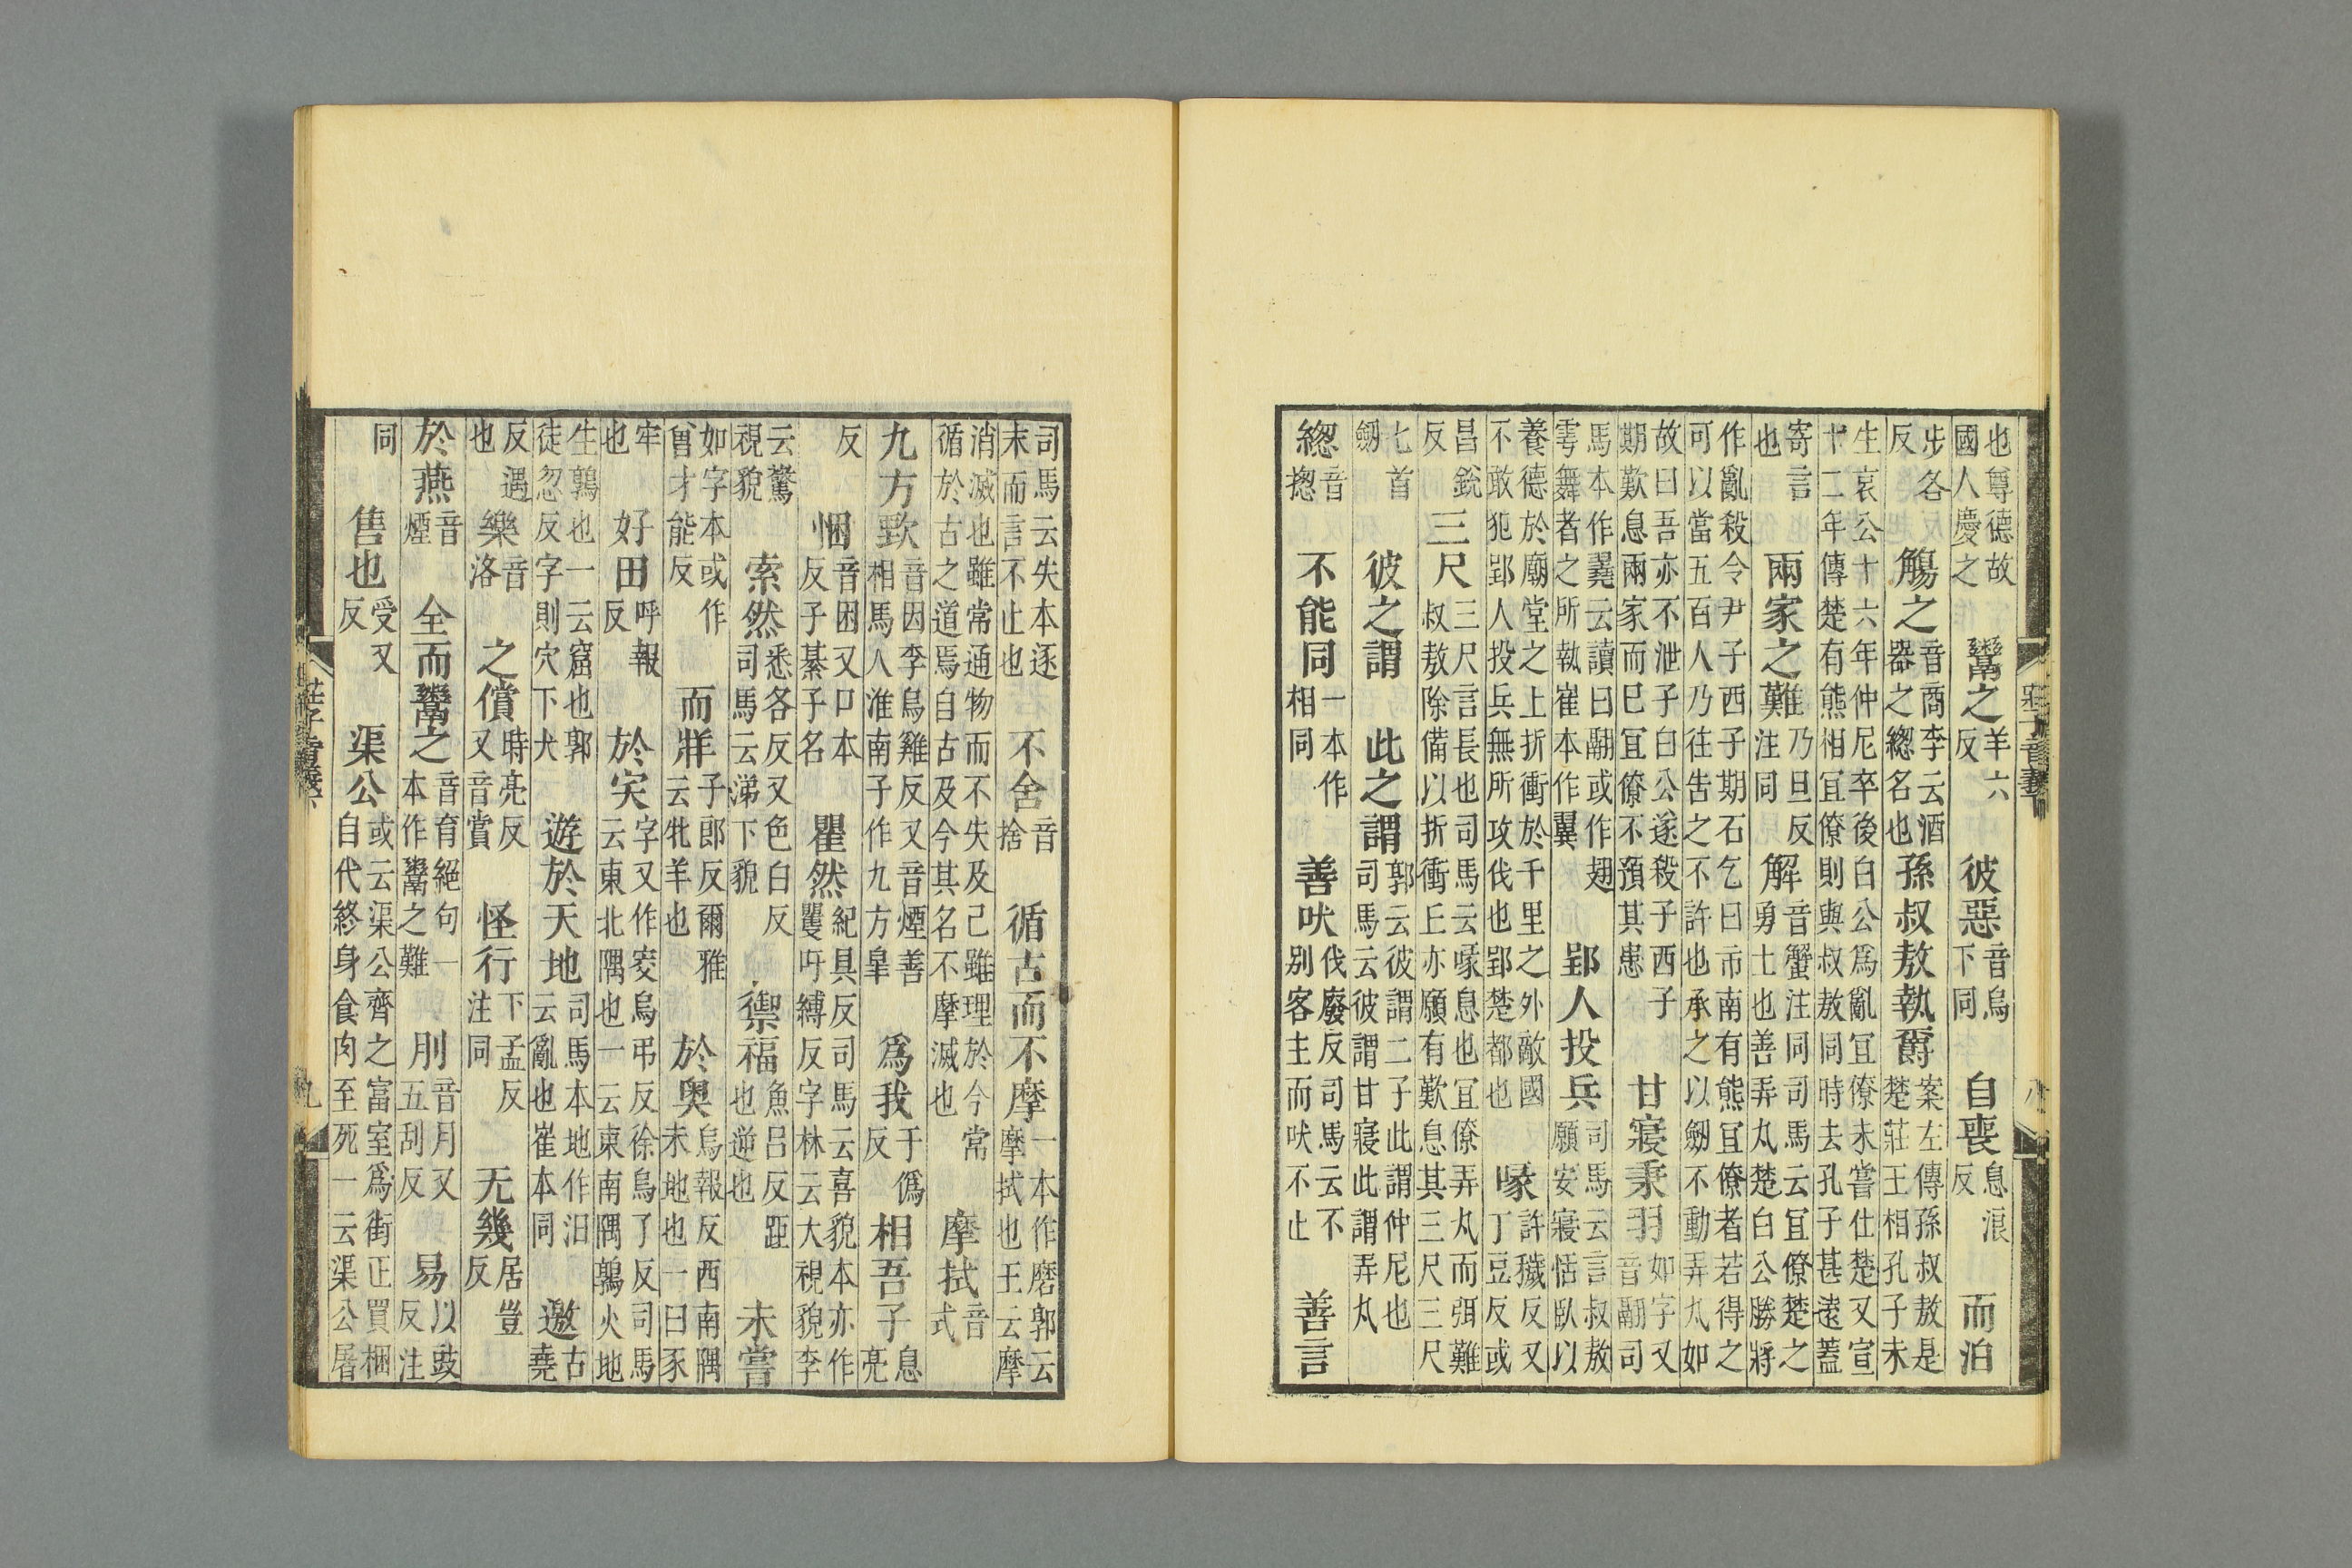 也尊德故國人慶之 鬻之羊六反 彼惡音烏下同 自喪息浪反 而泊
步各反 觴之音商李云酒器之緫名也 孫叔敖執爵案左傳孫叔敖是楚莊王相孔子未
生哀公十六年仲尼卒後白公爲亂宜僚未嘗仕楚又宣十二年傳楚有熊相宜僚則與叔敖同時去孔子甚遠蓋
寄言也 兩家之難乃旦反注同 解音蟹注同司馬云宜僚楚之勇士也善弄丸楚白公勝將
作亂殺令尹子西子期石乞曰市南有熊宜僚者若得之可以當五百人乃往告之不許也承之以劒不動弄丸如
故曰吾亦不泄子白公遂殺子西子期歎息兩家而已宜僚不預其患 甘寢秉羽如字又音翿司
馬本作云讀曰翿或作翅雩舞者之所執崔本作翼 郢人投兵司馬云言叔敖願安寢恬臥以
養德於廟堂之上折衝於千里之外敵國不敢犯郢人投兵無所攻伐也郢楚都也 喙許穢反又丁豆反或
昌銳反 三尺三尺言長也司馬云喙息也宜僚弄丸而弭難叔敖除備以折衝丘亦願有歎息其三尺三尺
匕首劒 彼之謂 此之謂郭云彼謂二子此謂仲尼也司馬云彼謂甘寢此謂弄丸
緫音揔 不能同一本作相同 善吠伐廢反司馬云不別客主而吠不止 善言
莊子音義下 八
司馬云失本逐末而言不止也 不舍音捨 循古而不摩一本作磨郭云摩拭也王云摩
消滅也雖常通物而不失及己雖理於今常循於古之道焉自古及今其名不摩滅也 摩拭音式
九方歅音因李烏雞反又音煙善相馬人淮南子作九方皐 爲我于僞反 相吾子息亮
反 梱音困又口本反子綦子名 瞿然紀具反司馬云喜貌本亦作矍吁縛反字林云大視貌李
云驚視貌 索然悉各反又色白反司馬云涕下貌 禦福魚呂反距也逆也 未嘗
如字本或作曾才能反 而牂子郎反爾雅云牝羊也 於奧烏報反西南隅未地也一曰豕
牢也 好田呼報反 於宎字又作窔烏弔反徐烏了反司馬云東北隅也一云東南隅鶉火地
生鶉也一云窟也郭徒忽反字則穴下犬 遊於天地司馬本地作汨云亂也崔本同 邀古堯
反遇也 樂音洛 之償時亮反又音賞 怪行下孟反注同 无幾居豈反
於燕音煙 全而鬻之音育絕句一本作鬻之難 刖音月又五刮反 易以豉反注
同 售也受又反 渠公或云渠公齊之富室爲街正買梱自代終身食肉至死一云渠公屠
莊子音義下 九